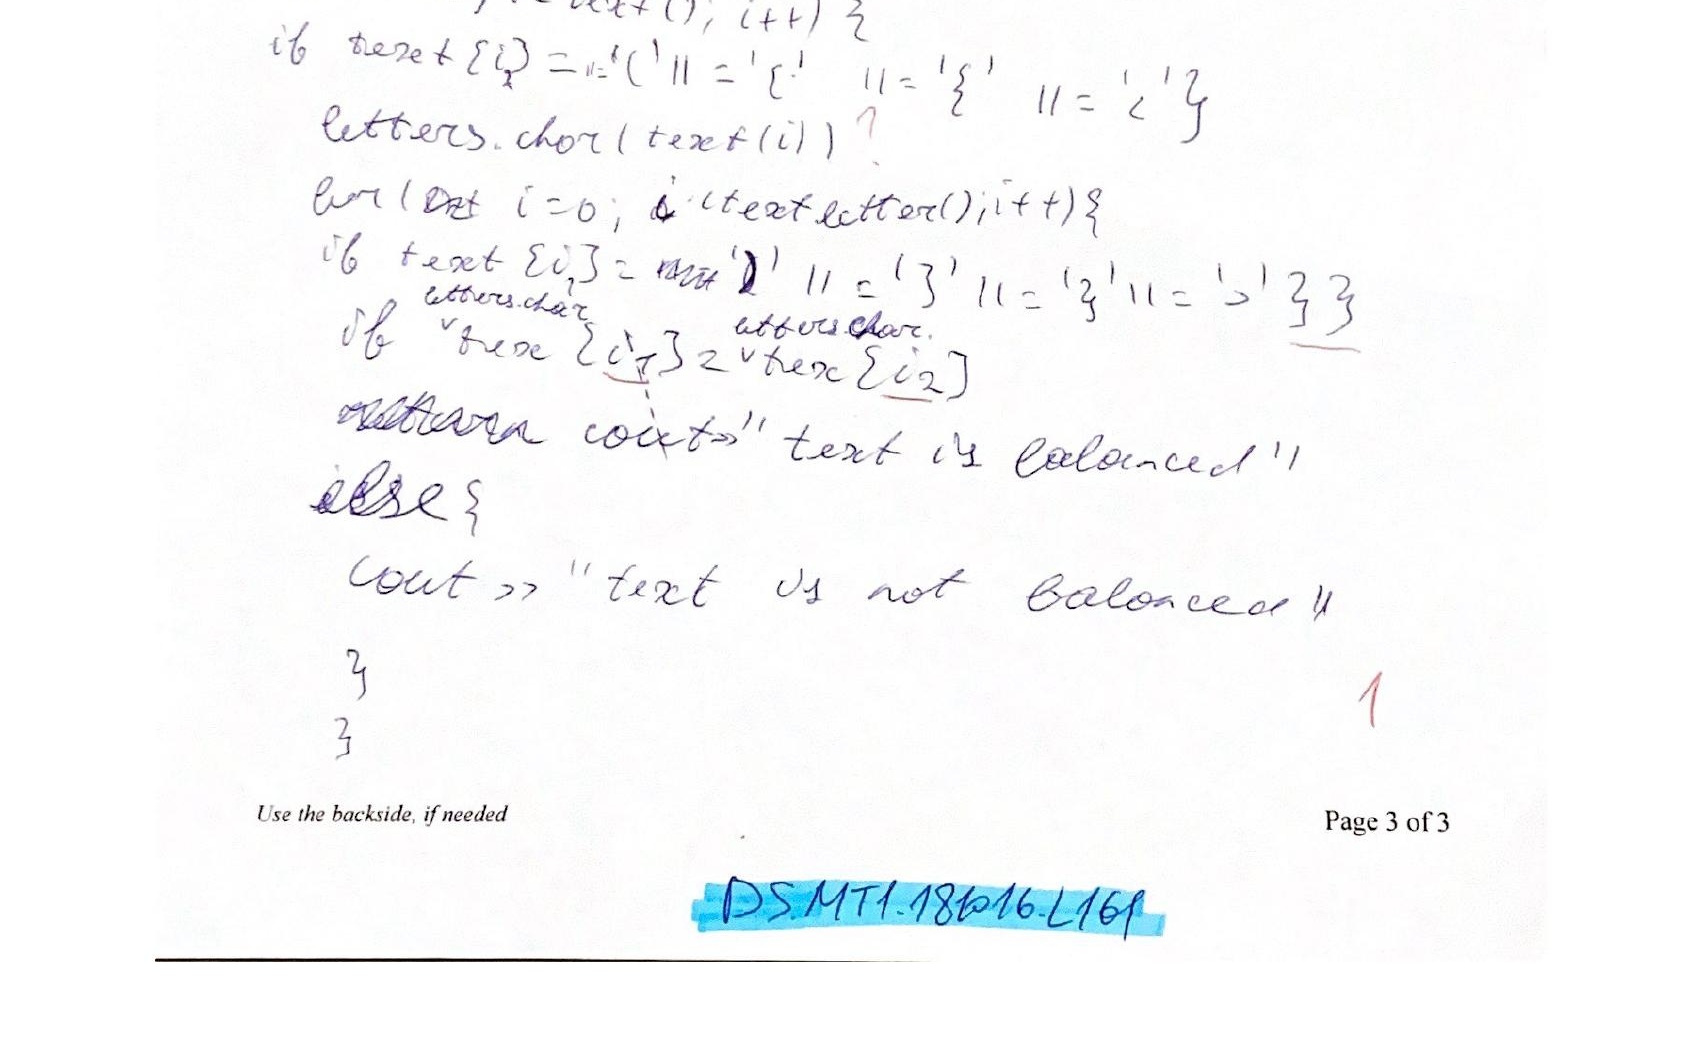 text(); i++) {
if text {i} = '(' || = '{' || = '{' || = '<' }
letters.char(text(i)) ?
for(int i=0; i <textletter();i++){
if text {i} = ')' || = '}' || = '}' || = '>' } }
letters.char letters char.
if tex {i1} = tex {i2}
return cout>>" text is balanced"
else {
cout >> "text is not balanced"
}
1
}
Use the backside, if needed Page 3 of 3
DS.MT1.181016.L161